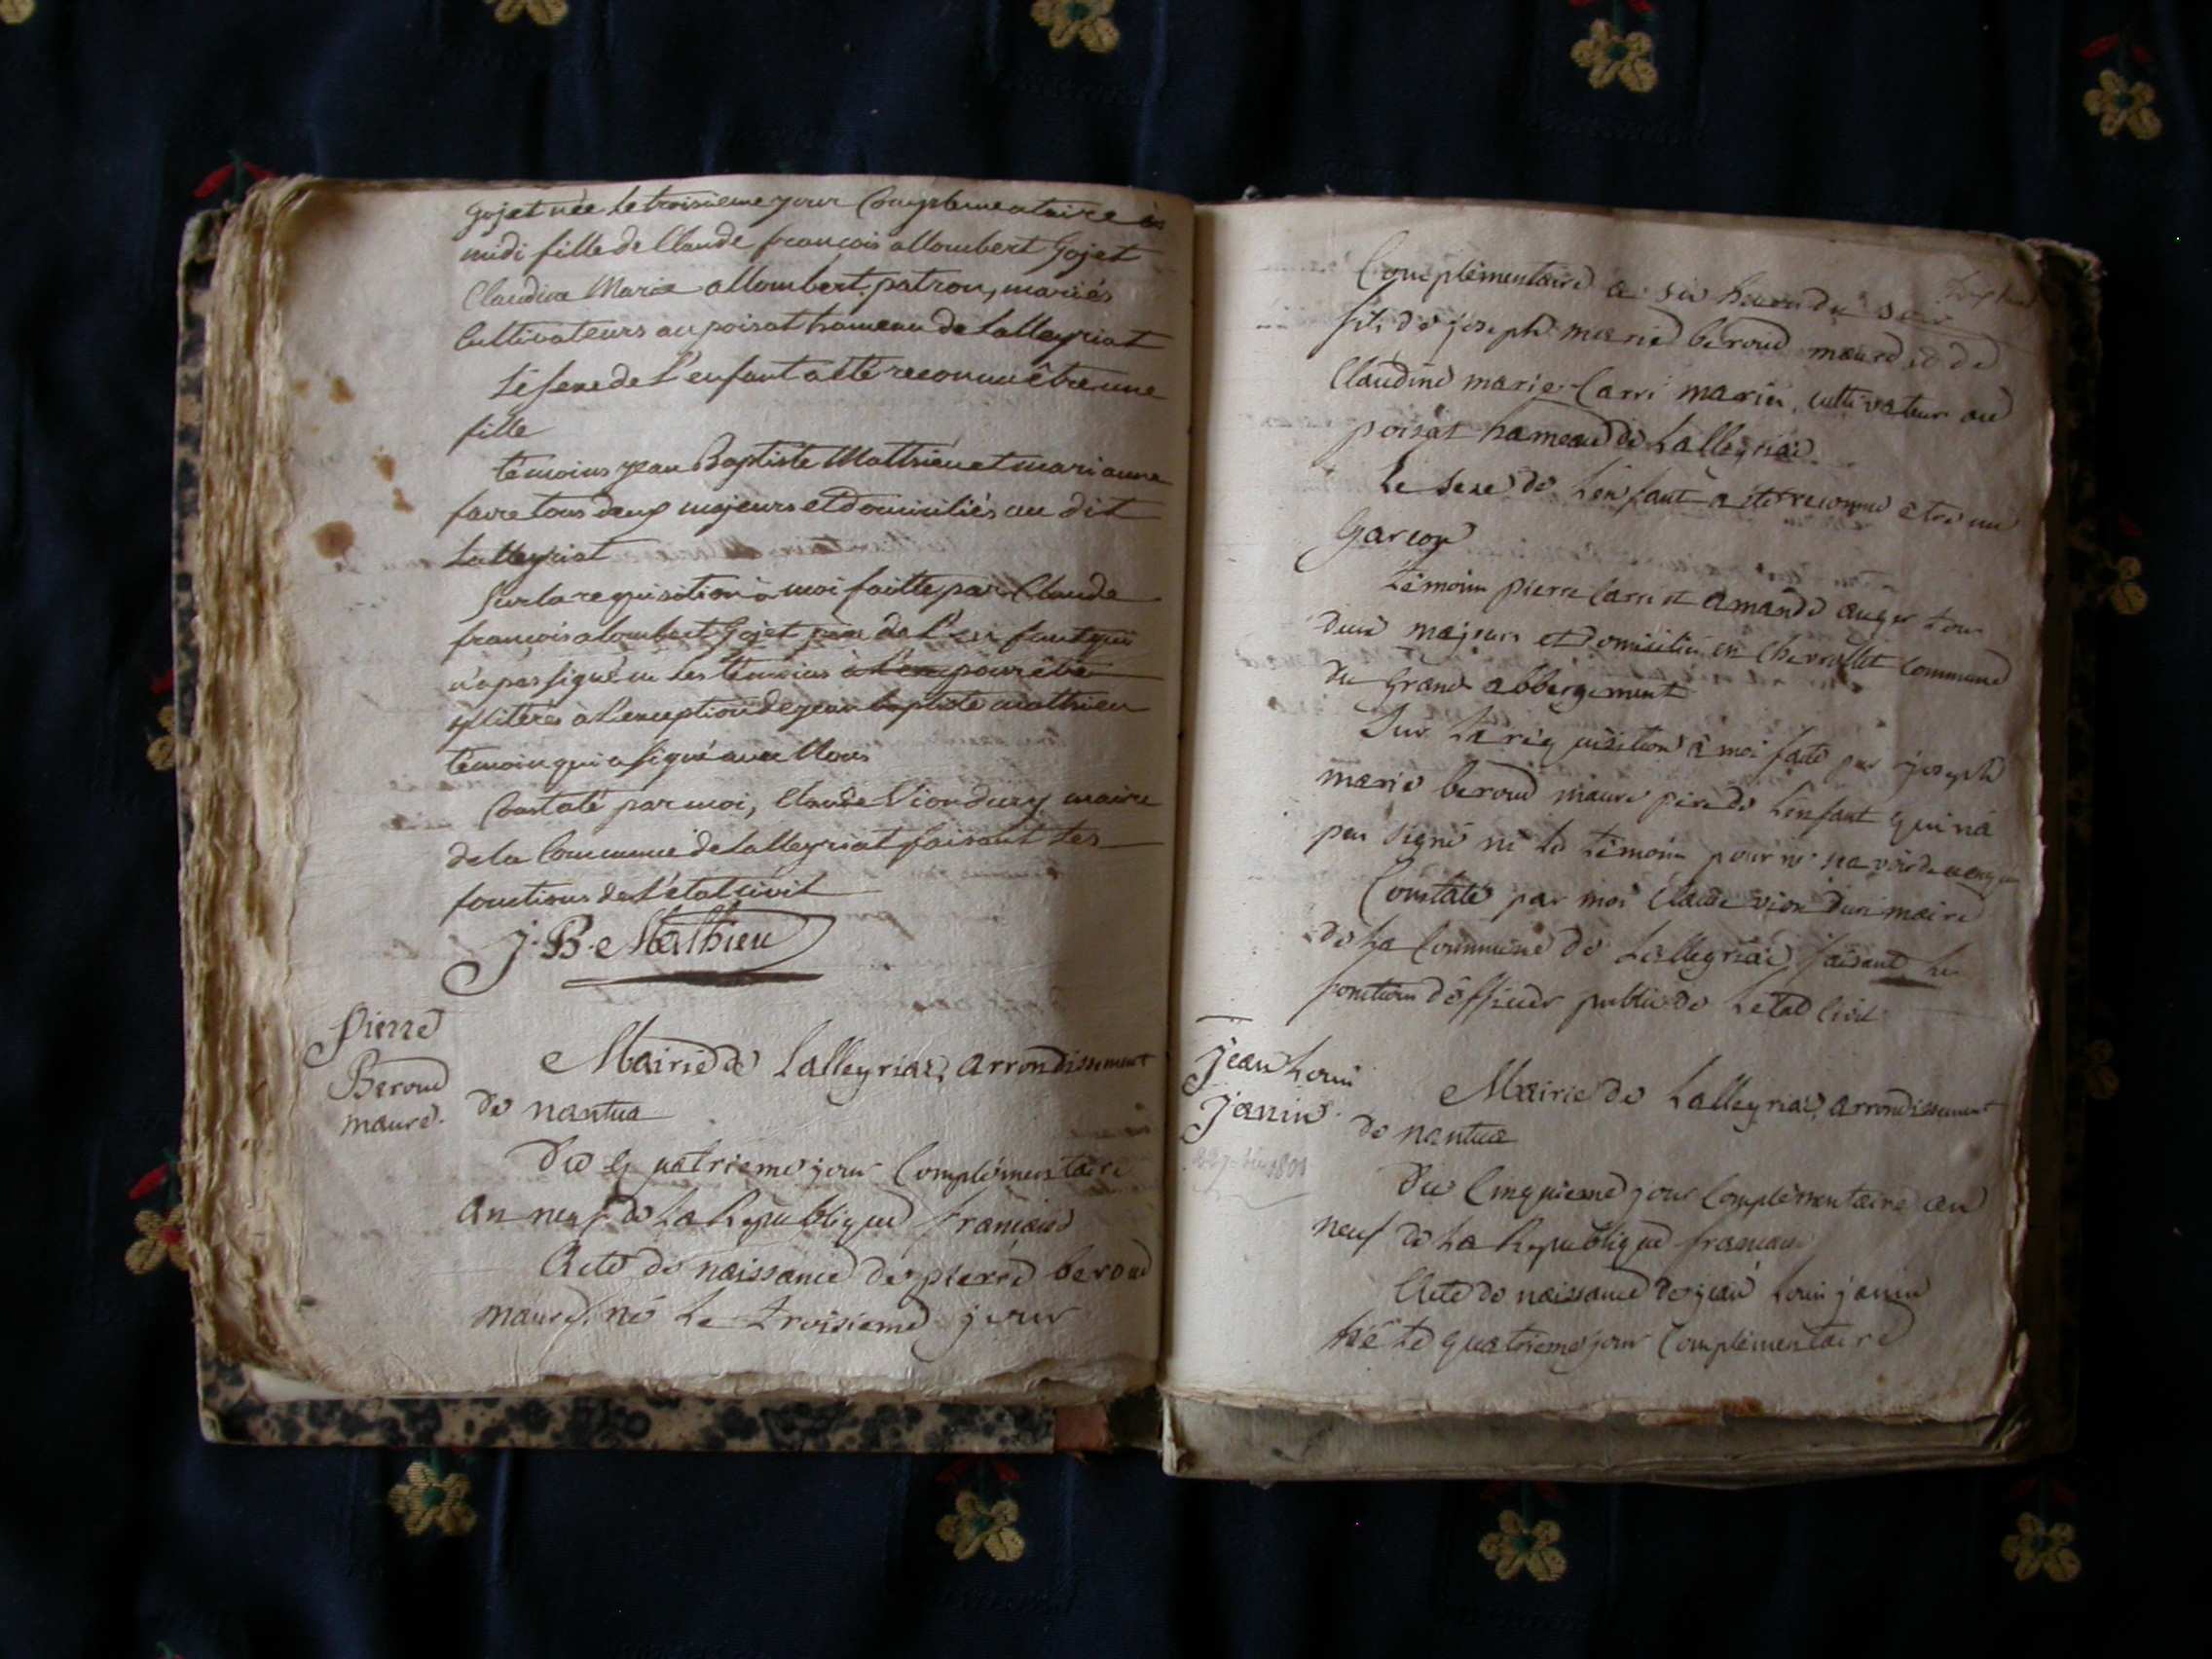 Gojet née le troisieme jour Complementaire à
midi fille de Claude françois allombert Gojet
Claudine Marie allombert patron, mariés
Cultivateurs au poisat hameau de Lalleyriat
Le sexe de l'enfant a été reconnu être une
fille
témoins jean Baptiste Mathieu et mari anne
favre tous deux majeurs et domiciliés au dit
Lalleyriat
Sur la requisition à moi faitte par Claude
françois alombert Gojet père de l'enfant qui
n'a pas signé ni les témoins pour être
illiterés à l'exception de jean baptiste mathieu
témoin qui a signé avec Nous
Constaté par moi, Claude Vion Dury maire
de la Commune de Lalleyriat faisant les
fonctions de l'état civil
J. B. Mathieu
Pierre
Beroud
maure.
Mairie de Lalleyriat, arrondissement
de nantua
Du quatrieme jour Complémentaire
an neuf de La Republique française
Acte de naissance de pierre beroud
maure, né Le troisieme jour
Complémentaire a six heures du soir
fils de joseph marie beroud maure et de
Claudine marie Carri mariés, cultivateurs au
poisat hameau de Lalleyriat
Le sexe de L'enfant a été reconnu etre un
Garçon
Témoins pierre Carri et amande auger tous
deux majeurs et domiciliés en Chevrillet Commune
du Grand abbergement
Sur La requisition a moi faite par joseph
marie beroud maure pere de L'enfant qui n'a
pas signé ni les témoins pour ne scavoir de ce enquis
Constaté par moi Claude vion duri maire
de La Commune de Lalleyriat faisant les
fonctions d'officier public de L'etat Civil
jean Louis
janin.
Mairie de Lalleyriat, arrondissement
de nantua
Du Cinquieme jour Complémentaire an
neuf de La Republique française
Acte de naissance de jean Louis janin
né le quatrieme jour Complementaire